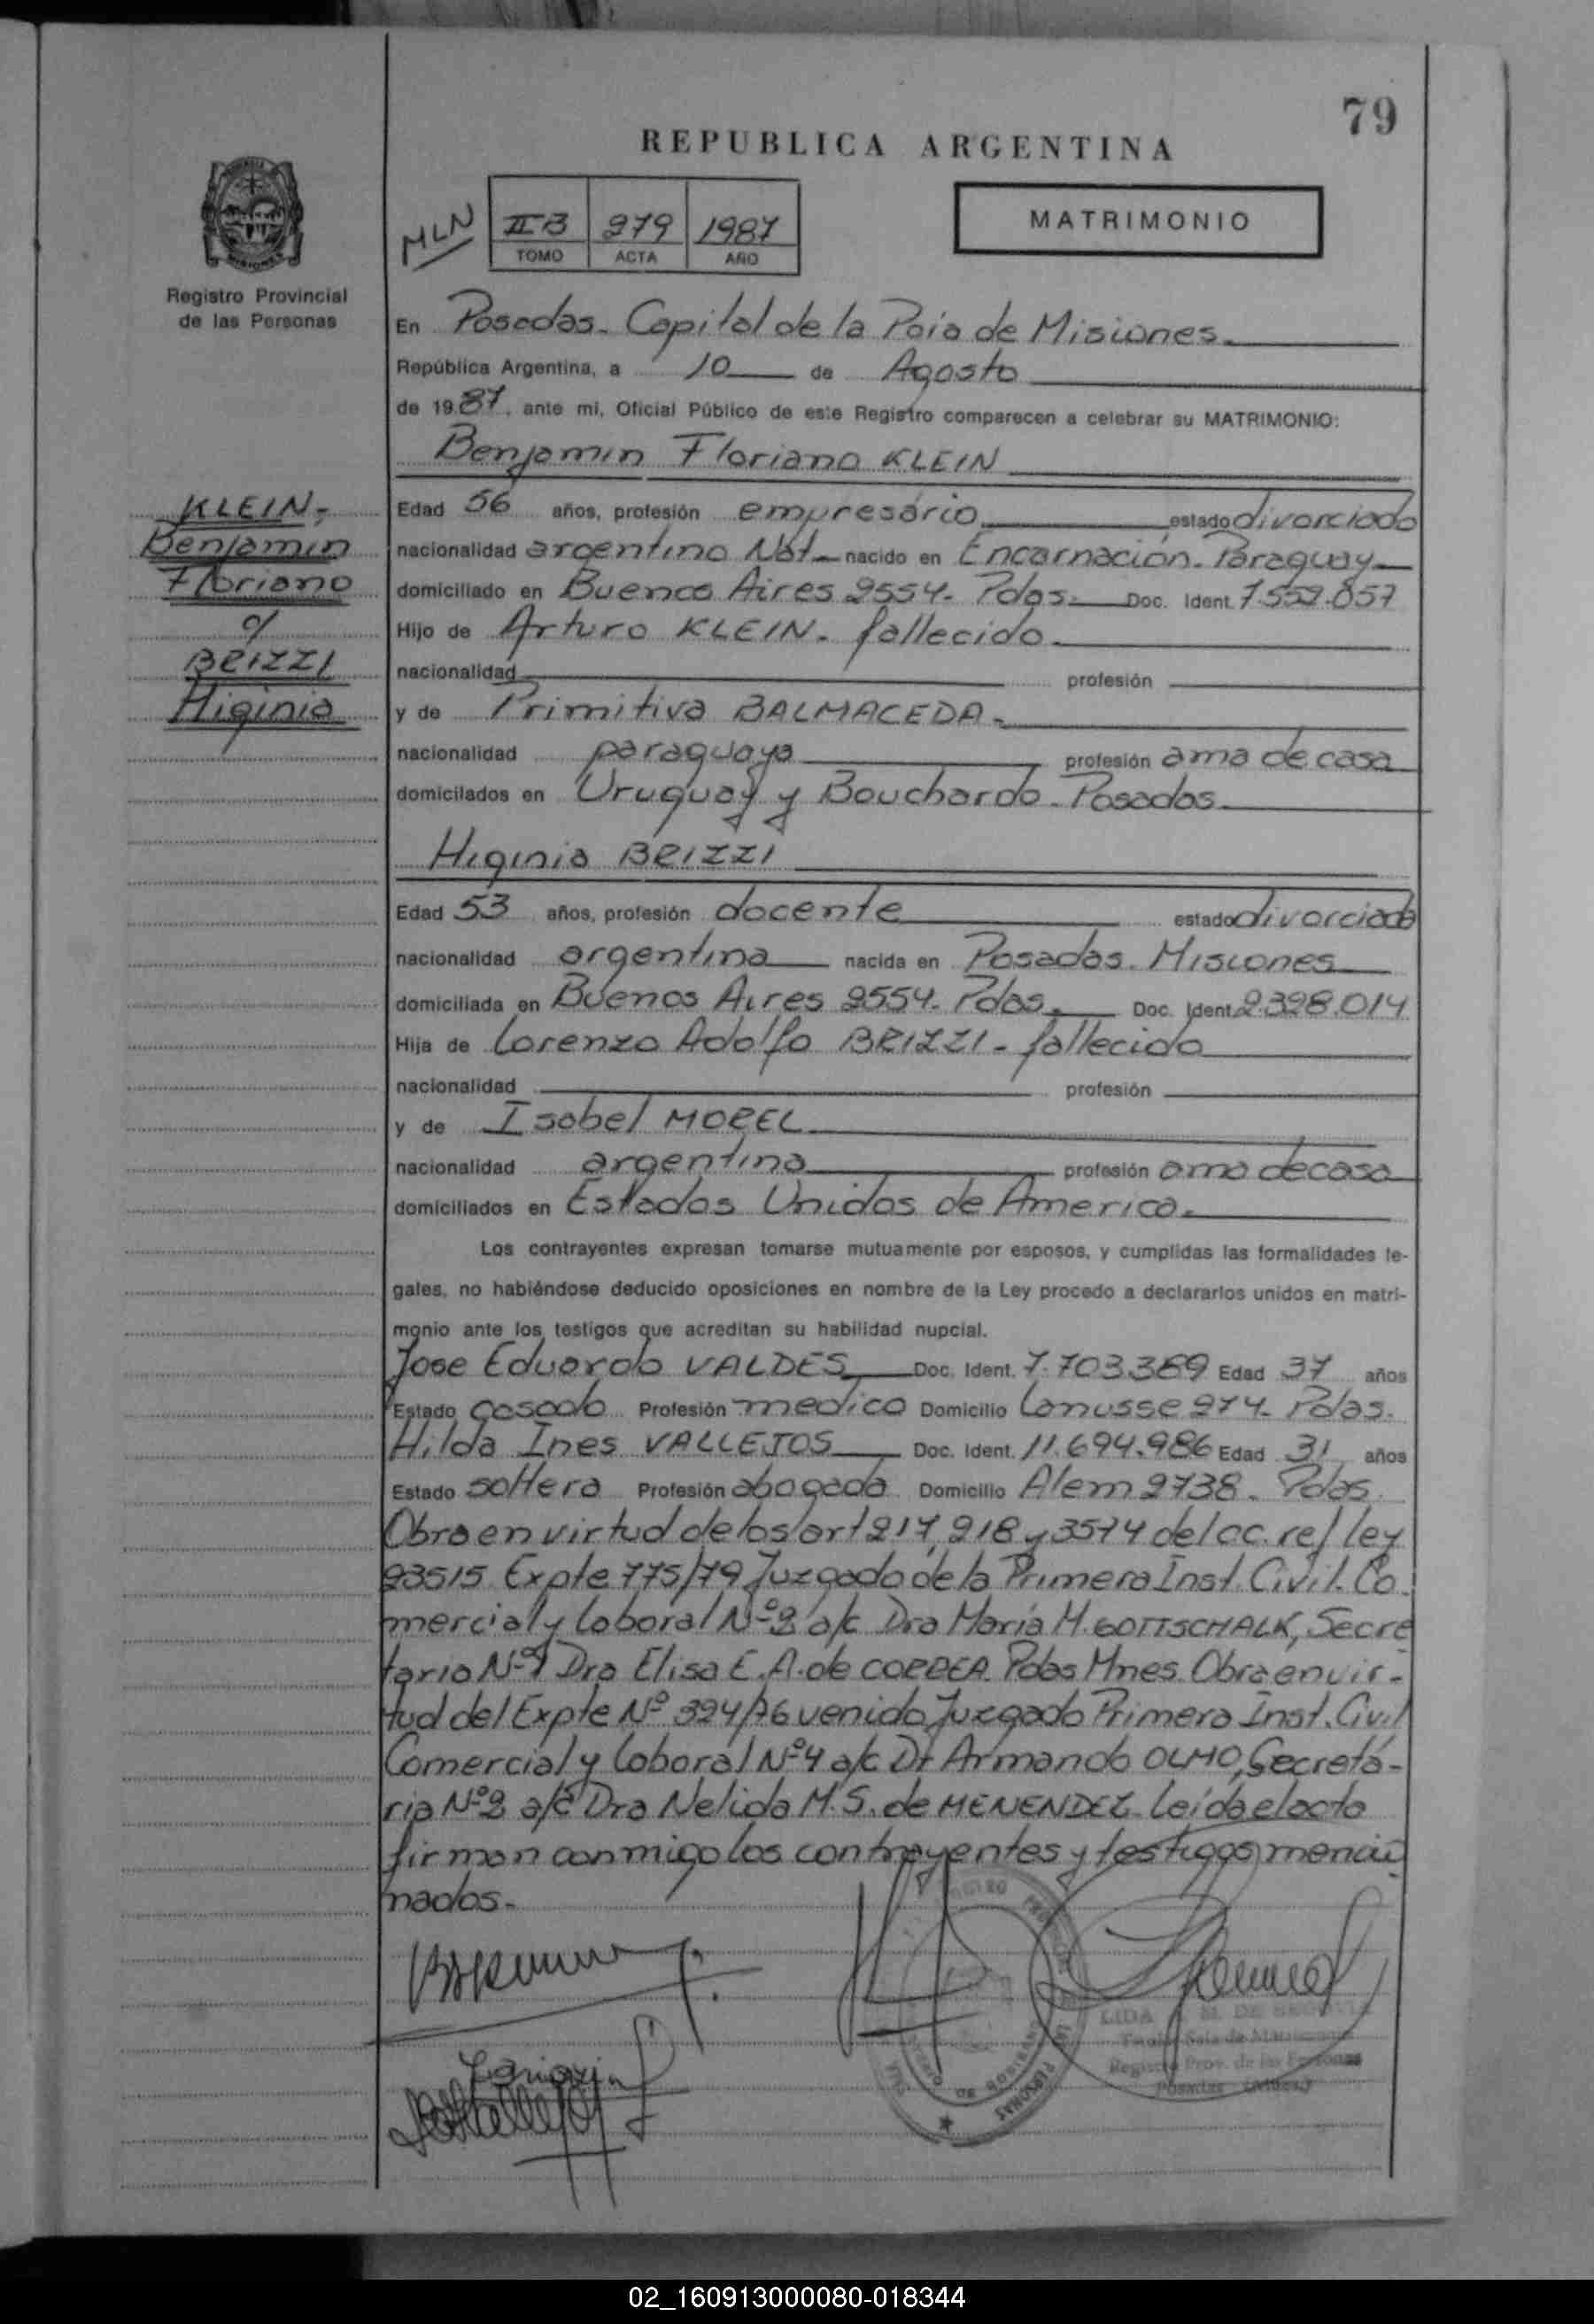 79
REPUBLICA ARGENTINA
MLN
II B 279 1987
TOMO ACTA AÑO
MATRIMONIO
Registro Provincial
de las Personas
En Posadas. Capital de la Pcia de Misiones.
República Argentina, a 10 de Agosto
de 1987, ante mi, Oficial Público de este Registro comparecen a celebrar su MATRIMONIO:
Benjamin Floriano KLEIN
KLEIN,
Benjamin
Floriano
c/
BRIZZI
Higinia
Edad 56 años, profesión empresario estado divorciado
nacionalidad argentino Nat. nacido en Encarnación. Paraguay
domiciliado en Buenos Aires 2554. Pdas. Doc. Ident. 7.552.857
Hijo de Arturo KLEIN. fallecido.
nacionalidad profesión
y de Primitiva BALMACEDA.
nacionalidad paraguaya profesión ama de casa
domicilados en Uruguay y Bouchardo. Posadas.
Higinia BRIZZI
Edad 53 años, profesión docente estado divorciada
nacionalidad argentina nacida en Posadas. Misiones
domiciliada en Buenos Aires 2554. Pdas. Doc. Ident. 2.328.014
Hija de Lorenzo Adolfo BRIZZI - fallecido
nacionalidad profesión
y de Isabel MOREL
nacionalidad argentina profesión ama de casa
domiciliados en Estados Unidos de America.
Los contrayentes expresan tomarse mutuamente por esposos, y cumplidas las formalidades le-
gales, no habiéndose deducido oposiciones en nombre de la Ley procedo a declararlos unidos en matri-
monio ante los testigos que acreditan su habilidad nupcial.
Jose Eduardo VALDES Doc. Ident. 7.703.389 Edad 37 años
Estado casado Profesión medico Domicilio Lanusse 274. Pdas.
Hilda Ines VALLEJOS Doc. Ident. 11.694.986 Edad 31 años
Estado soltera Profesión abogada Domicilio Alem 2738. Pdas.
Obra en virtud de los art 217, 218 y 3574 del cc. ref ley
23515 Expte 775/79 Juzgado de la Primera Inst. Civil. Co
mercial y laboral Nº 2 a/c Dra Maria M. GOTTSCHALK, Secre
taria Nº 1 Dra Elisa E. A. de CORREA. Pdas Mnes. Obra en vir-
tud del Expte Nº 324/76 venido Juzgado Primera Inst. Civil
Comercial y laboral Nº 4 a/c Dr Armando OLMO, Secreta-
ria Nº 2 a/c Dra Nelida M. S. de MENENDEZ. Leida el acta
firman conmigo los contrayentes y testigos mencio
nados.
LIDA M. DE
Registro Prov. de las Personas
Posadas
PERSONAS
02_160913000080-018344